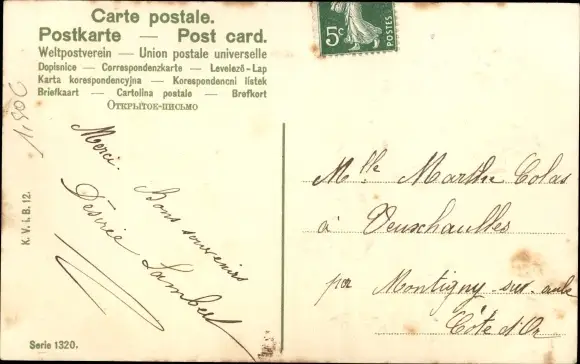 Carte postale.
Postkarte — Post card.
Weltpostverein — Union postale universelle
Dopisnice — Correspondenzkarte — Levelező-Lap
Karta korespondencyjna — Korespondencni listek
Briefkaart — Cartolina postale — Brefkort
Открытое-письмо
5c
POSTES
1,500
Merci.
Bons souvenirs
Désirée Lambert
Mlle Marthe Colas
à Veuxhaulles
par Montigny-sur-aube
Côte d'Or
K. V. i. B. 12.
Serie 1320.